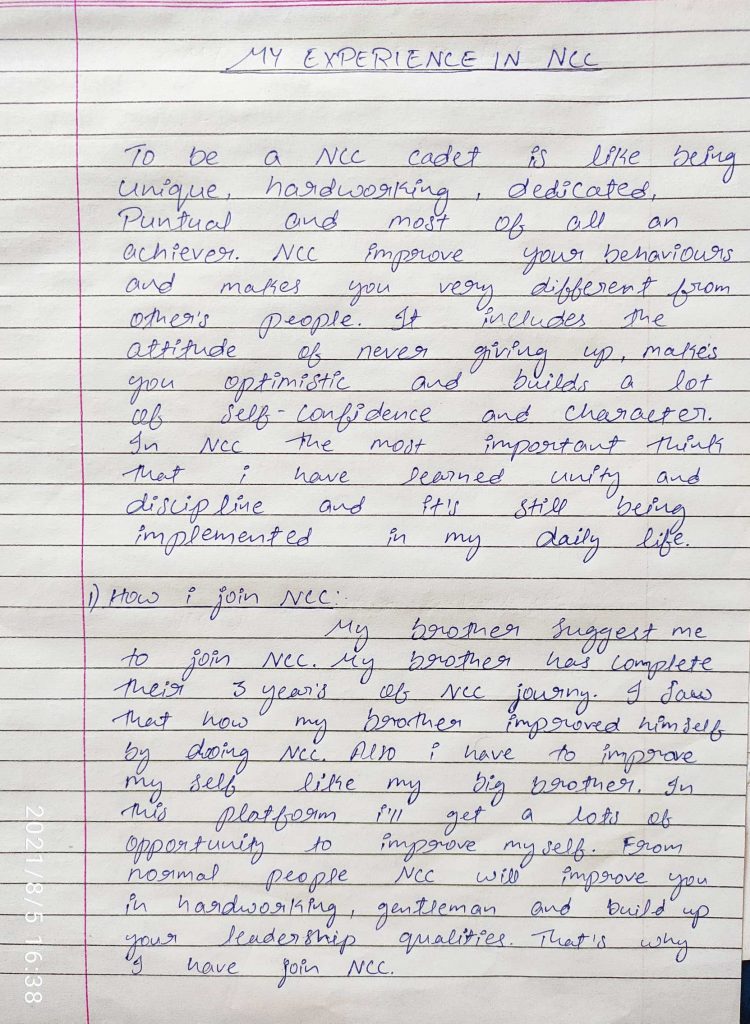 MY EXPERIENCE IN NCC
To be a NCC cadet is like being
unique, hardworking, dedicated,
Puntual and most of all an
achiever. NCC improve your behaviours
and makes you very different from
other's people. It includes the
attitude of never giving up, make's
you optimistic and builds a lot
of self-confidence and character.
In NCC the most important think
that i have learned unity and
discipline and it's still being
implemented in my daily life.
1) How i join NCC:
My brother suggest me
to join NCC. My brother has complete
their 3 year's of NCC journy. I saw
that how my brother improved himself
by doing NCC. Also i have to improve
my self like my big brother. In
this platform i'll get a lots of
opportunity to improve my self. From
normal people NCC will improve you
in hardworking, gentleman and build up
your leadership qualities. That's why
I have join NCC.
2021/8/5 16:38